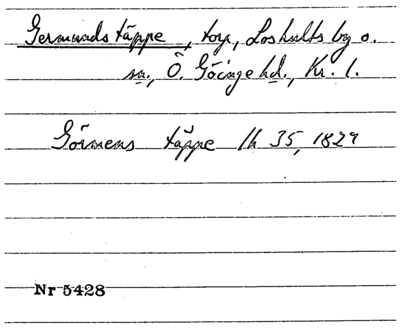 Germunds täppe, torp, Loshults by o.
sn., Ö. Göinge hd., Kr. l.
Görmens täppe lh 35, 1829
Nr 5428